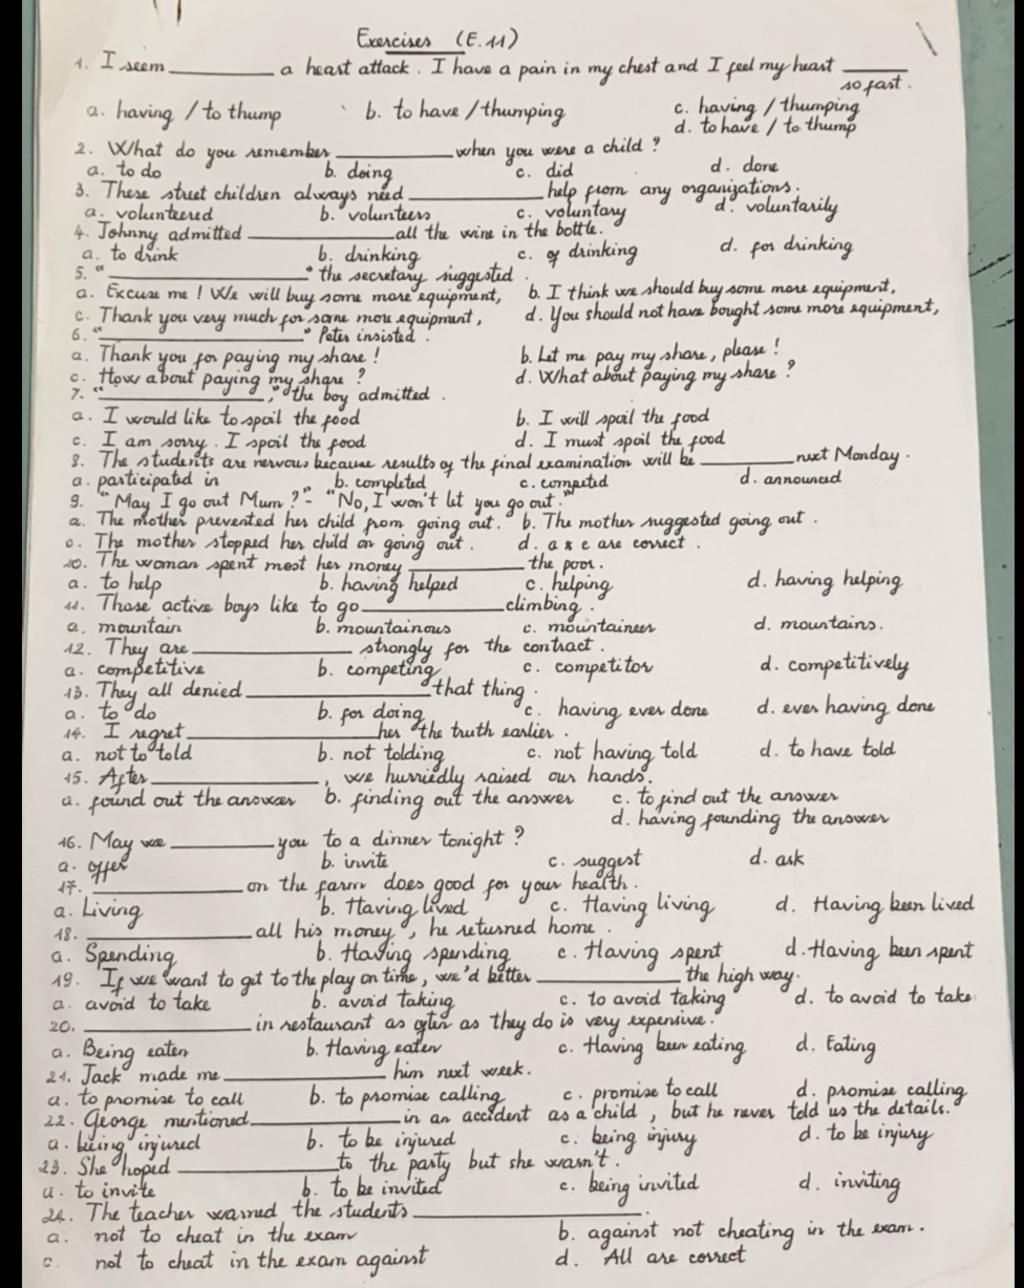 Exercises (E.11)
1. I seem ________ a heart attack. I have a pain in my chest and I feel my heart ________
so fast.
a. having / to thump b. to have / thumping c. having / thumping
d. to have / to thump
2. What do you remember ________ when you were a child ?
a. to do b. doing c. did d. done
3. These street children always need ________ help from any organizations.
a. volunteered b. volunteers c. voluntary d. voluntarily
4. Johnny admitted ________ all the wine in the bottle.
a. to drink b. drinking c. of drinking d. for drinking
5. "________" the secretary suggested.
a. Excuse me ! We will buy some more equipment, b. I think we should buy some more equipment,
c. Thank you very much for some more equipment, d. You should not have bought some more equipment,
6. "________" Peter insisted.
a. Thank you for paying my share ! b. Let me pay my share, please !
c. How about paying my share ? d. What about paying my share ?
7. "________," the boy admitted.
a. I would like to spoil the food b. I will spoil the food
c. I am sorry. I spoil the food d. I must spoil the food
8. The students are nervous because results of the final examination will be ________ next Monday.
a. participated in b. completed c. competed d. announced
9. "May I go out Mum ?" - "No, I won't let you go out."
a. The mother prevented her child from going out. b. The mother suggested going out.
c. The mother stopped her child on going out. d. a & c are correct.
10. The woman spent most her money ________ the poor.
a. to help b. having helped c. helping d. having helping
11. Those active boys like to go ________ climbing.
a. mountain b. mountainous c. mountaineer d. mountains.
12. They are ________ strongly for the contract.
a. competitive b. competing c. competitor d. competitively
13. They all denied ________ that thing.
a. to do b. for doing c. having ever done d. ever having done
14. I regret ________ her the truth earlier.
a. not to told b. not tolding c. not having told d. to have told
15. After ________, we hurriedly raised our hands.
a. found out the answer b. finding out the answer c. to find out the answer
d. having founding the answer
16. May we ________ you to a dinner tonight ?
a. offer b. invite c. suggest d. ask
17. ________ on the farm does good for your health.
a. Living b. Having lived c. Having living d. Having been lived
18. ________ all his money, he returned home.
a. Spending b. Having spending c. Having spent d. Having been spent
19. If we want to get to the play on time, we'd better ________ the high way.
a. avoid to take b. avoid taking c. to avoid taking d. to avoid to take
20. ________ in restaurant as often as they do is very expensive.
a. Being eaten b. Having eaten c. Having been eating d. Eating
21. Jack made me ________ him next week.
a. to promise to call b. to promise calling c. promise to call d. promise calling
22. George mentioned ________ in an accident as a child, but he never told us the details.
a. being injured b. to be injured c. being injury d. to be injury
23. She hoped ________ to the party but she wasn't.
a. to invite b. to be invited c. being invited d. inviting
24. The teacher warned the students ________.
a. not to cheat in the exam b. against not cheating in the exam.
c. not to cheat in the exam against d. All are correct